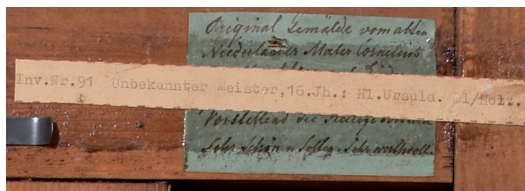 Original Gemälde vom alten
Niederländer Maler Cornelius
Inv.Nr.91 Unbekannter Meister,16.Jh.: Hl.Ursula. Öl/Holz.
Vorstellend die heilige
Sehr Schön u Selten, Sehr werthvoll.